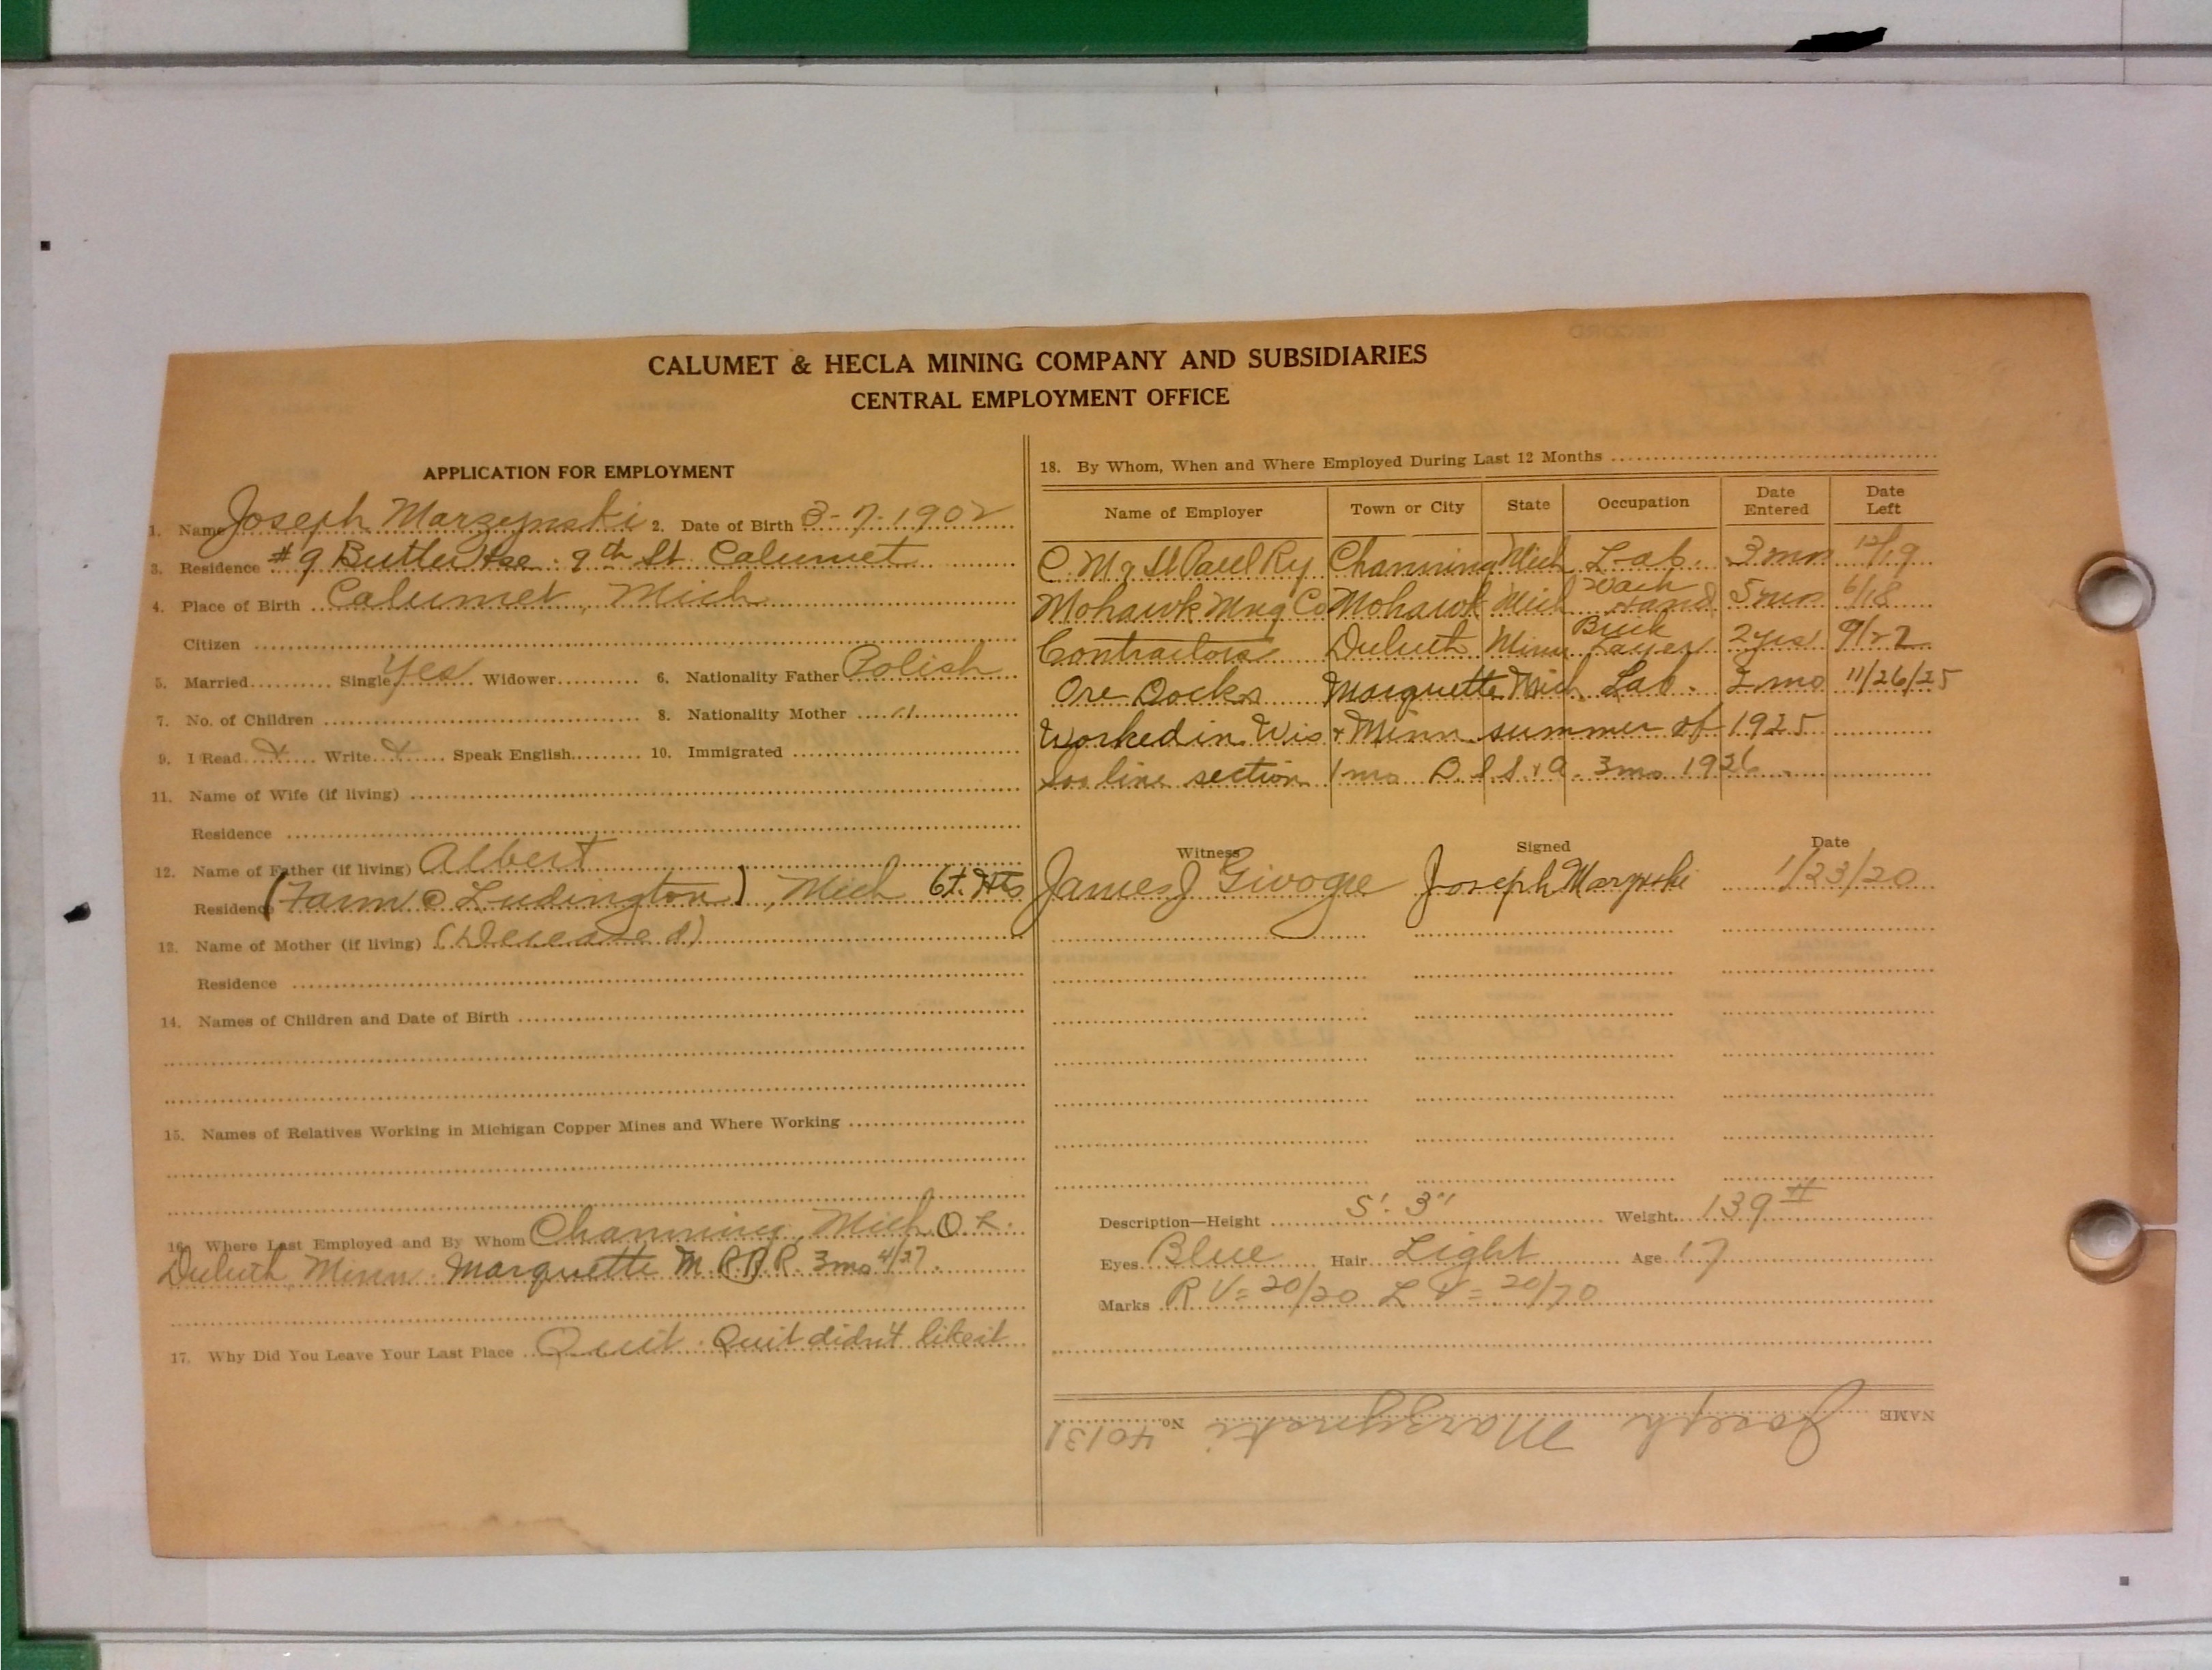 CALUMET & HECLA MINING COMPANY AND SUBSIDIARIES
CENTRAL EMPLOYMENT OFFICE
APPLICATION FOR EMPLOYMENT
1. Name Joseph Marzynski 2. Date of Birth 3-7-1902
3. Residence #9 Butler Hse. 9th St. Calumet
4. Place of Birth Calumet, Mich
Citizen
5. Married Single Yes Widower 6. Nationality Father Polish
7. No. of Children 8. Nationality Mother "
9. I Read X Write X Speak English 10. Immigrated
11. Name of Wife (if living)
Residence
12. Name of Father (if living) Albert
Residence (Farm @ Ludington), Mich 6t. Hts
13. Name of Mother (if living) (Deceased)
Residence
14. Names of Children and Date of Birth
15. Names of Relatives Working in Michigan Copper Mines and Where Working
16. Where Last Employed and By Whom Channing, Mich.
Duluth Minn. Marquette M R.R. 3mo 4/27.
17. Why Did You Leave Your Last Place Quit. Quit didn't like it
18. By Whom, When and Where Employed During Last 12 Months
Name of Employer Town or City State Occupation Date Entered Date Left
C. M & St Paul Ry Channing Mich Lab. 3 mos 12/19
Mohawk Mng Co Mohawk Mich Hand 5 mos 6/18
Contractors Duluth Minn Brick Layer 2 yrs 9/22
Ore Docks Marquette Mich Lab. mo 11/26/25
Worked in Wis & Minn summer of 1925
Soo line section 1 mo D.S.S. & A. 3mo 1926
Witness Signed Date
James J Joseph Marzynski 1/23/20
Description—Height 5' 3" Weight 139 #
Eyes Blue Hair Light Age 17
Marks R V = 20/20 L V = 20/70
NAME Joseph Marzynski No. 40131